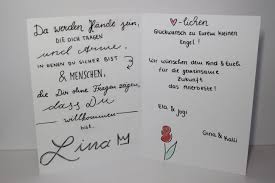 Da werden Hände sein,
DIE DICH TRAGEN
und Arme,
IN DENEN DU SICHER BIST
& MENSCHEN,
die Dir ohne Fragen zeigen,
dass Du
willkommen
bist.
Lina
-lichen
Glückwunsch zu Eurem kleinen
Engel!
Wir wünschen dem Kind & Euch
für die gemeinsame
Zukunft
das Allerbeste!
Ela & Jogi
Gina & Kalli